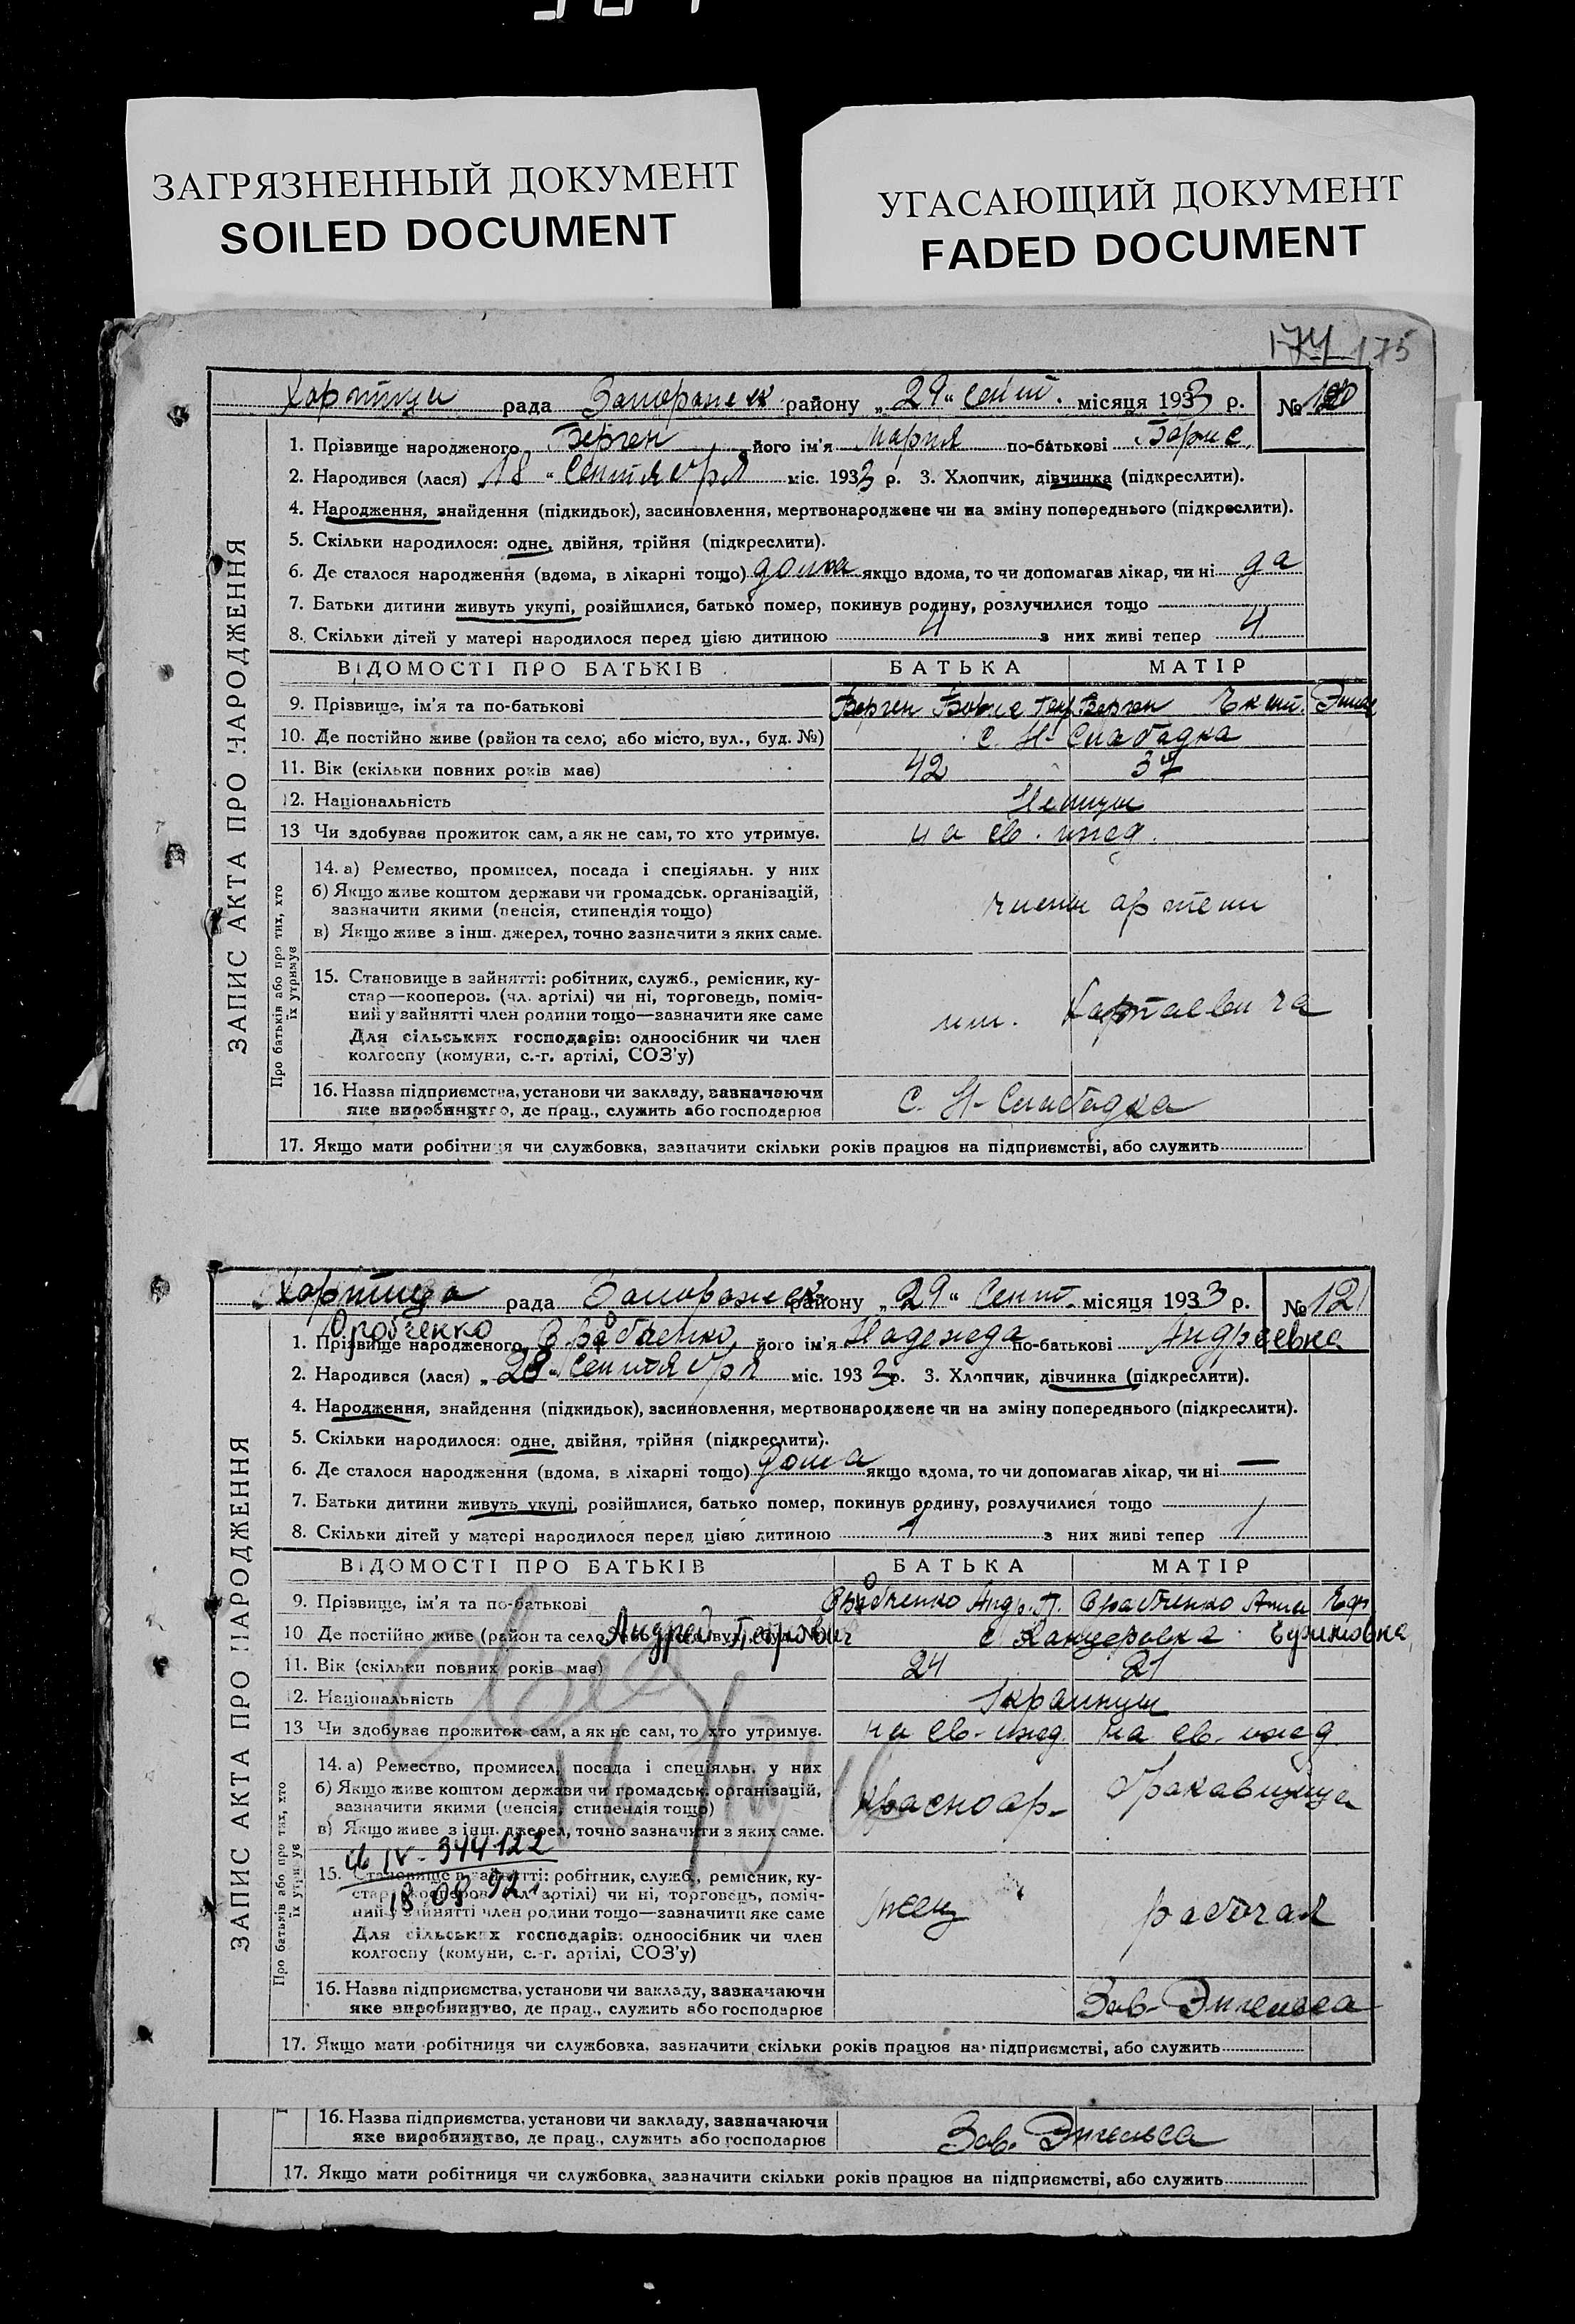 ЗАГРЯЗНЕННЫЙ ДОКУМЕНТ
SOILED DOCUMENT
УГАСАЮЩИЙ ДОКУМЕНТ
FADED DOCUMENT
174 175
Хортица рада Запорожск району „29“ Сент. місяця 1933 р. № 120
ЗАПИС АКТА ПРО НАРОДЖЕННЯ
1. Прізвище народженого Берген його ім'я Мария по-батькові
2. Народився (лася) „18“ Сентября міс. 1933 р. 3. Хлопчик, дівчинка (підкреслити).
4. Народження, знайдення (підкидьок), засиновлення, мертвонароджене чи на зміну попереднього (підкреслити).
5. Скільки народилося: одне, двійня, трійня (підкреслити).
6. Де сталося народження (вдома, в лікарні тощо) дома якщо вдома, то чи допомагав лікар, чи ні да
7. Батьки дитини живуть укупі, розійшлися, батько помер, покинув родину, розлучилися тощо
8. Скільки дітей у матері народилося перед цією дитиною 4 з них живі тепер 4
ВІДОМОСТІ ПРО БАТЬКІВ БАТЬКА МАТІР
9. Прізвище, ім'я та по-батькові Берген Берген
10. Де постійно живе (район та село, або місто, вул., буд. №) с. Н-Слабадка
11. Вік (скільки повних років має) 42 37
12. Національність Немцы
13 Чи здобуває прожиток сам, а як не сам, то хто утримує. на св. ижд.
Про батьків або про тих, хто їх утримує
14. а) Ремество, промисел, посада і спеціяльн. у них
б) Якщо живе коштом держави чи громадськ. організацій,
зазначити якими (пенсія, стипендія тощо)
члены артели
в) Якщо живе з інш. джерел, точно зазначити з яких саме.
15. Становище в зайнятті: робітник, служб., ремісник, ку-
стар—кооперов. (чл. артілі) чи ні, торговець, поміч-
ний у зайнятті член родини тощо—зазначити яке саме
Для сільських господарів: одноосібник чи член
колгоспу (комуни, с.-г. артілі, СОЗ'у)
16. Назва підприємства, установи чи закладу, зазначаючи
яке виробництво, де прац., служить або господарює
с. Н-Слабадка
17. Якщо мати робітниця чи службовка, зазначити скільки років працює на підприємстві, або служить
Хортица рада Запорожск району „29“ Сент. місяця 1933 р. № 121
ЗАПИС АКТА ПРО НАРОДЖЕННЯ
1. Прізвище народженого його ім'я Надежда по-батькові Андреевна
2. Народився (лася) „28“ Сентября міс. 1933 р. 3. Хлопчик, дівчинка (підкреслити).
4. Народження, знайдення (підкидьок), засиновлення, мертвонароджене чи на зміну попереднього (підкреслити).
5. Скільки народилося: одне, двійня, трійня (підкреслити).
6. Де сталося народження (вдома, в лікарні тощо) дома якщо вдома, то чи допомагав лікар, чи ні —
7. Батьки дитини живуть укупі, розійшлися, батько помер, покинув родину, розлучилися тощо
8. Скільки дітей у матері народилося перед цією дитиною 1 з них живі тепер 1
ВІДОМОСТІ ПРО БАТЬКІВ БАТЬКА МАТІР
9. Прізвище, ім'я та по-батькові Андр. П. Анна Еф
Андрей Петрович
10 Де постійно живе (район та село с. Канцеровка
11. Вік (скільки повних років має) 24 21
12. Національність Украинцы
13 Чи здобуває прожиток сам, а як не сам, то хто утримує. на св. ижд. на св. ижд.
Про батьків або про тих, хто їх утримує
14. а) Ремество, промисел, посада і спеціяльн. у них
б) Якщо живе коштом держави чи громадськ. організацій,
зазначити якими (пенсія, стипендія тощо)
красноар-
в) Якщо живе з інш. джерел, точно зазначити з яких саме.
IV-344122
18 08 92
15. Становище в зайнятті: робітник, служб., ремісник, ку-
стар—кооперов. (чл. артілі) чи ні, торговець, поміч-
ний у зайнятті член родини тощо—зазначити яке саме
меец рабочая
Для сільських господарів: одноосібник чи член
колгоспу (комуни, с.-г. артілі, СОЗ'у)
16. Назва підприємства, установи чи закладу, зазначаючи
яке виробництво, де прац., служить або господарює
Зав. Энгельса
17. Якщо мати робітниця чи службовка, зазначити скільки років працює на підприємстві, або служить
16. Назва підприємства, установи чи закладу, зазначаючи
яке виробництво, де прац., служить або господарює
Зав. Энгельса
17. Якщо мати робітниця чи службовка, зазначити скільки років працює на підприємстві, або служить